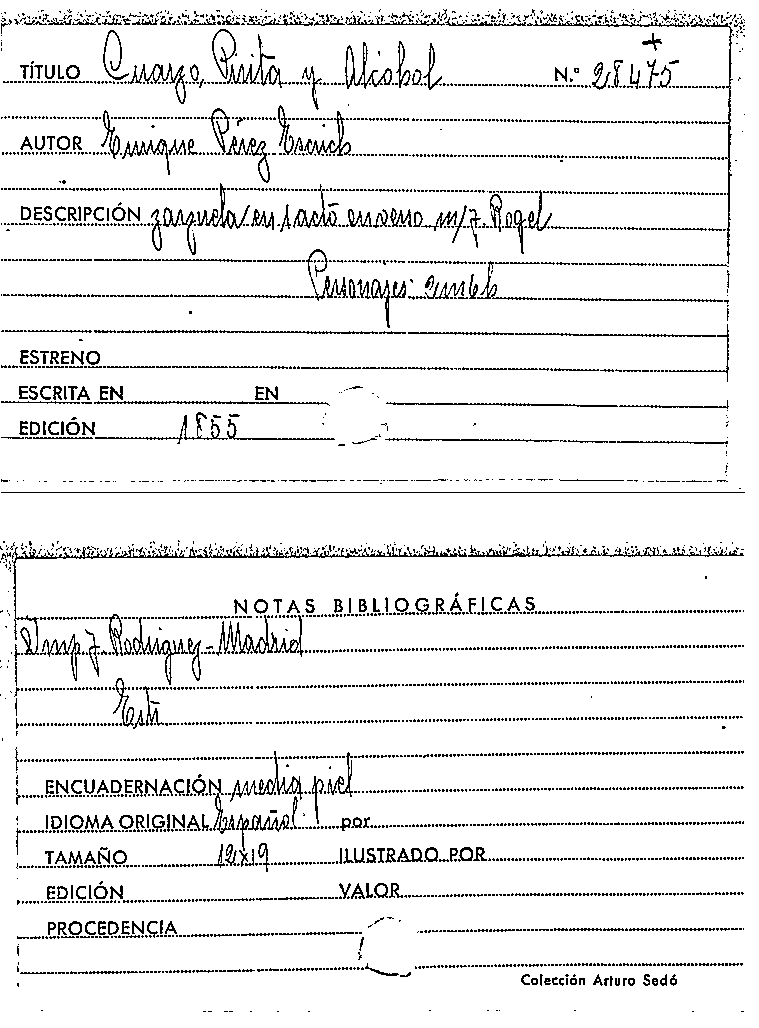 +
TÍTULO Cuarzo, Pirita y Alcohol N.º 28475
AUTOR Enrique Pérez Escrich
DESCRIPCIÓN zarzuela en 1 acto en verso m/ J. Rogel
Personajes: 2m 6h
ESTRENO
ESCRITA EN EN
EDICIÓN 1855
NOTAS BIBLIOGRÁFICAS
Imp J. Rodriguez - Madrid
ENCUADERNACIÓN media piel
IDIOMA ORIGINAL Español por
TAMAÑO 12x19 ILUSTRADO POR
EDICIÓN VALOR
PROCEDENCIA
Colección Arturo Sedó